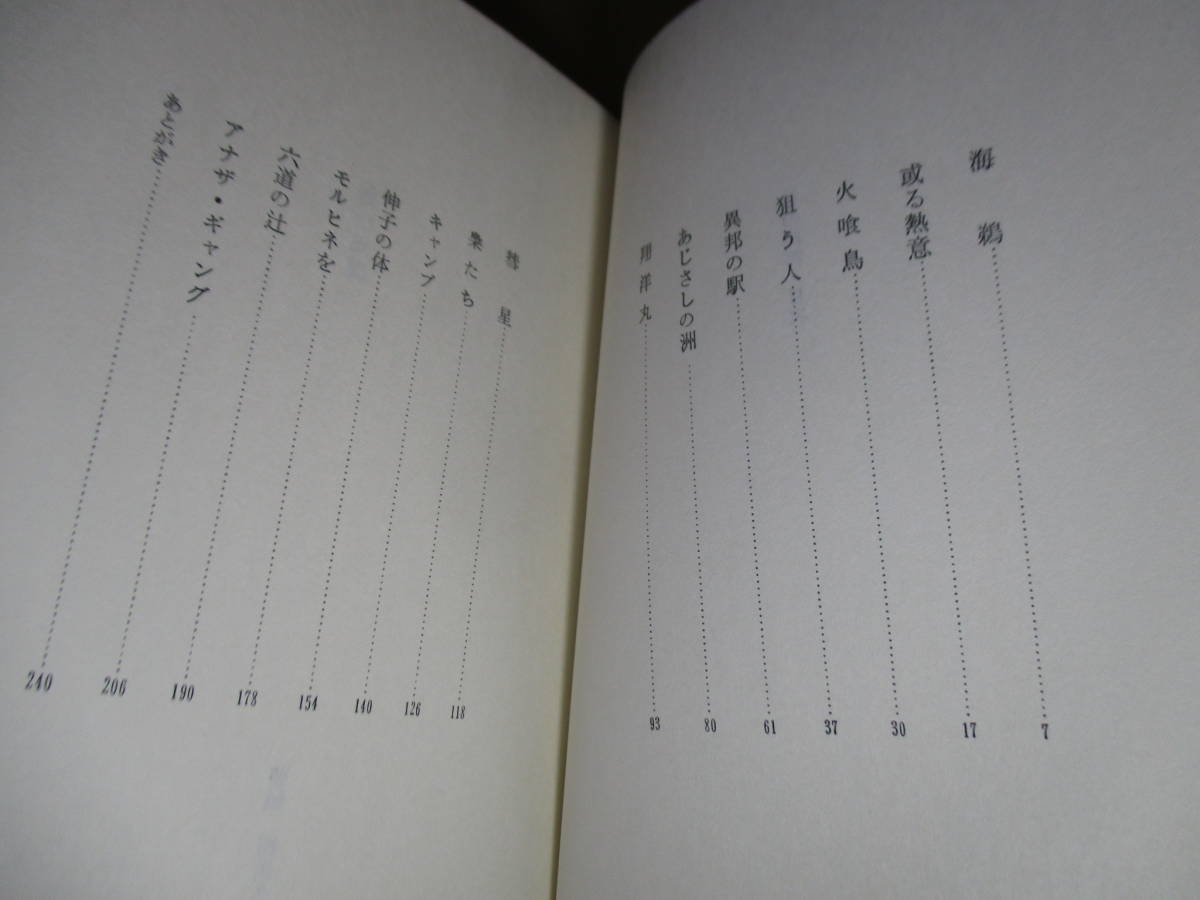 海鵜……7
或る熱意……17
火喰鳥……30
狙う人……37
異邦の駅……61
あじさしの洲……80
翔洋丸……93
彗星……118
梟たち……126
キャンプ……140
伸子の体……154
モルヒネを……178
六道の辻……190
アナザ・ギャング……206
あとがき……240